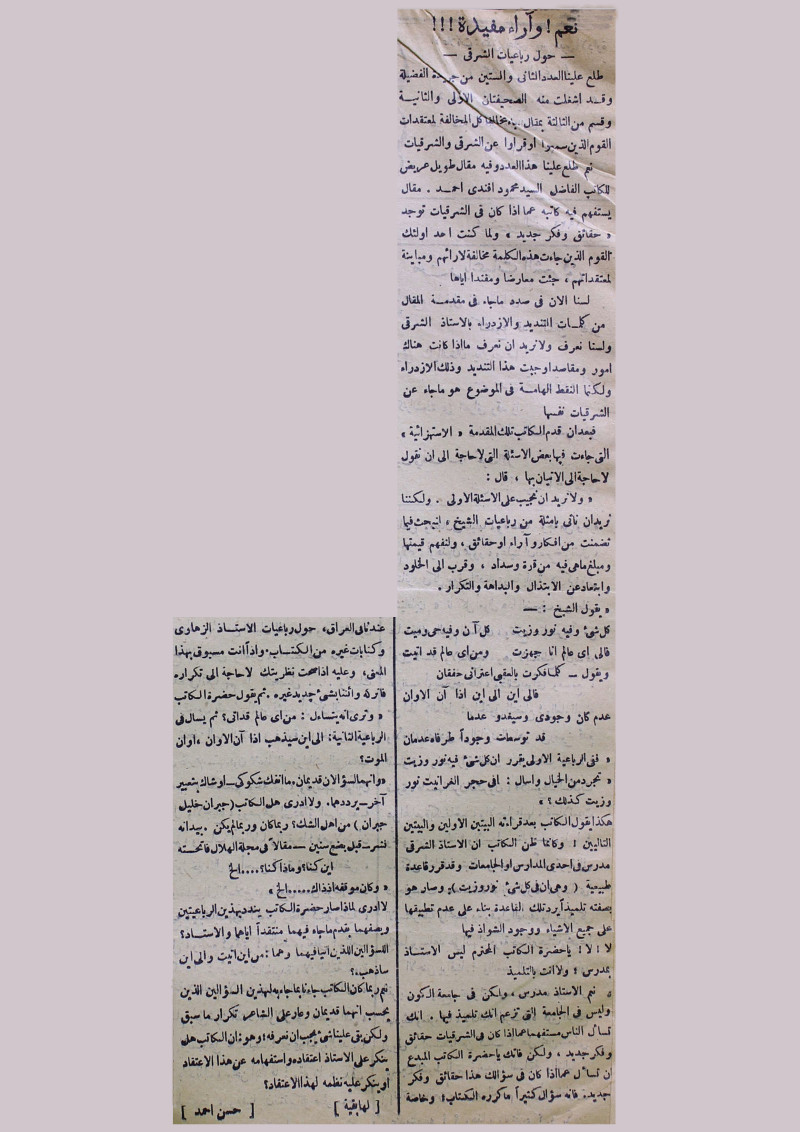 نعم! وآراء مفيدة!!!
— حول رباعيات الشرقي —
طلع علينا العدد الثاني والستين من جريدة الفضيلة
وقد اشغلت منه الصحيفتان الاولى والثانية
وقسم من الثالثة بمقال يخالف كل المخالفة لمعتقدات
القوم الذين سمعوا او قرأوا عن الشرقي والشرقيات
نعم طلع علينا هذا العدد وفيه مقال طويل عريض
للكاتب الفاضل السيد محمود افندي احمد . مقال
يستفهم فيه كاتبه عما اذا كان في الشرقيات توجد
« حقائق وفكر جديد » ولما كنت احد اولئك
القوم الذين جاءت هذه الكلمة مخالفة لارائهم ومباينة
لمعتقداتهم ، جئت معارضا ومفندا اياها
لسنا الان في صدد ماجاء في مقدمة المقال
من كلمات التنديد والازدراء بالاستاذ الشرقي
ولسنا نعرف ولا نريد ان نعرف مااذا كانت هناك
امور ومقاصد اوجبت هذا التنديد وذلك الازدراء
ولكنما النقط الهامة في الموضوع هو ماجاء عن
الشرقيات نفسها
فبعد ان قدم الكاتب تلك المقدمة « الاستهزائية »
التي جاءت فيها بعض الاسئلة التي لاحاجة الى ان نقول
لاحاجة الى الاتيان بها ، قال :
« ولا نريد ان نجيب على الاسئلة الاولى . ولكننا
نريد ان ناتي بامثلة من رباعيات الشيخ ، لنبحث فيما
تضمنت من افكار وآراء او حقائق ، ولنفهم قيمتها
ومبلغ ماهي فيه من قرة وسداد ، وقرب الى الخلود
وابتعاد عن الابتذال والبداهة والتكرار .
« يقول الشيخ : —
كل شئ وفيه نور وزيت كل آن وفيه حي وميت
فالى اي عالم انا جهزت ومن اي عالم قد اتيت
ويقول — كلما فكرت بالعقبى اعتراني خفقان
فالى اين الى اين اذا آن الاوان
عدم كان وجودي وسيغدو عدما
قد توسطت وجوداً طرفاه عدمان
« ففي الرباعية الاولى يقرر ان كل شئ فيه نور وزيت
« تجرد من الخيال واسال : افي حجر الغرانيت نور
وزيت كذلك ؟ »
هكذا يقول الكاتب بعد قراءته البيتين الاولين والبيتين
التاليين ! وكانما ظن الكاتب ان الاستاذ الشرقي
مدرس في احدى المدارس او الجامعات وقد قرر قاعدة
طبيعية ( وهي ان في كل شئ نور وزيت ) ؛ وسار هو
بصفته تلميذاً يرد تلك القاعدة بناء على عدم تطبيقها
على جميع الاشياء ووجود الشواذ فيها
لا ! لا ! ياحضرة الكاتب المحترم ليس الاستاذ
بمدرس ! ولا انت بالتلميذ
« نعم الاستاذ مدرس ، ولكن في جامعة الكون
وليس في الجامعة التي تزعم انك تلميذ فيها . انك
تسأل الناس مستفهما عما اذا كان في الشرقيات حقائق
وفكر جديد ، ولكن فاتك ياحضرة الكاتب المبدع
ان تسأل عما اذا كان في سؤالك هذا حقائق وفكر
جديد. فانه سؤال كثيراً ماكرره الكتاب! وخاصة
عندنا في العراق، حول رباعيات الاستاذ الزهاوي
وكتابات غيره من الكتاب. واذاً انت مسبوق بهذا
المعنى، وعليه اذا صحت نظريتك لاحاجة الى تكراره
فاتركه وائتنا بشئ جديد غيره . ثم يقول حضرة الكاتب
« وترى انه يتساءل : من اي عالم قد اتى؟ ثم يسال في
الرباعية الثانية: الى اين سيذهب اذا آن الاوان ، اوان
الموت؟
«وانهما لسؤالان قديمان. ما انفك شكوكي—او شاك بتعبير
آخر — يرددهما. ولا ادري هل الكاتب (جبران خليل
جبران ) من اهل الشك؟ ربما كان وربما لم يكن . بيد انه
نشر—قبل بضع سنين—مقالاً في مجلة الهلال فاتحته
اين كنا؟ وماذا كنا؟ .... الخ
« وكان موقفه اذ ذاك ..... الخ »
لا ادري لماذا سار حضرة الكاتب يندد بهذين الرباعيتين
ويصفهما بقدم ماجاء فيهما منتقداً اياهما والاستاذ؟
اللسؤالين اللذين اتيا فيهما وهما : من اين اتيت والى اين
ساذهب ،؟
نعم ربما كان الكاتب جاءنا بما جاء به لهذين السؤالين الذين
يحسب انهما قديمان وعار على الشاعر تكرار ما سبق
ولكن بقي علينا شئ يجب ان نعرفه! وهو: ان الكاتب هل
ينكر على الاستاذ اعتقاده واستفهامه عن هذا الاعتقاد
او ينكر عليه نظمه لهذا الاعتقاد؟
[ لها بقية ] [ حسن احمد ]